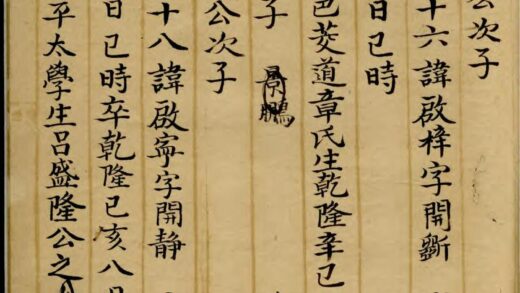 公次子
十六諱啟梓字開斵
日巳時
邑茭道章氏生乾隆辛巳
子 景鵬
公次子
十八諱啟寧字開靜
日巳時卒乾隆己亥八月
平太學生呂盛隆公之